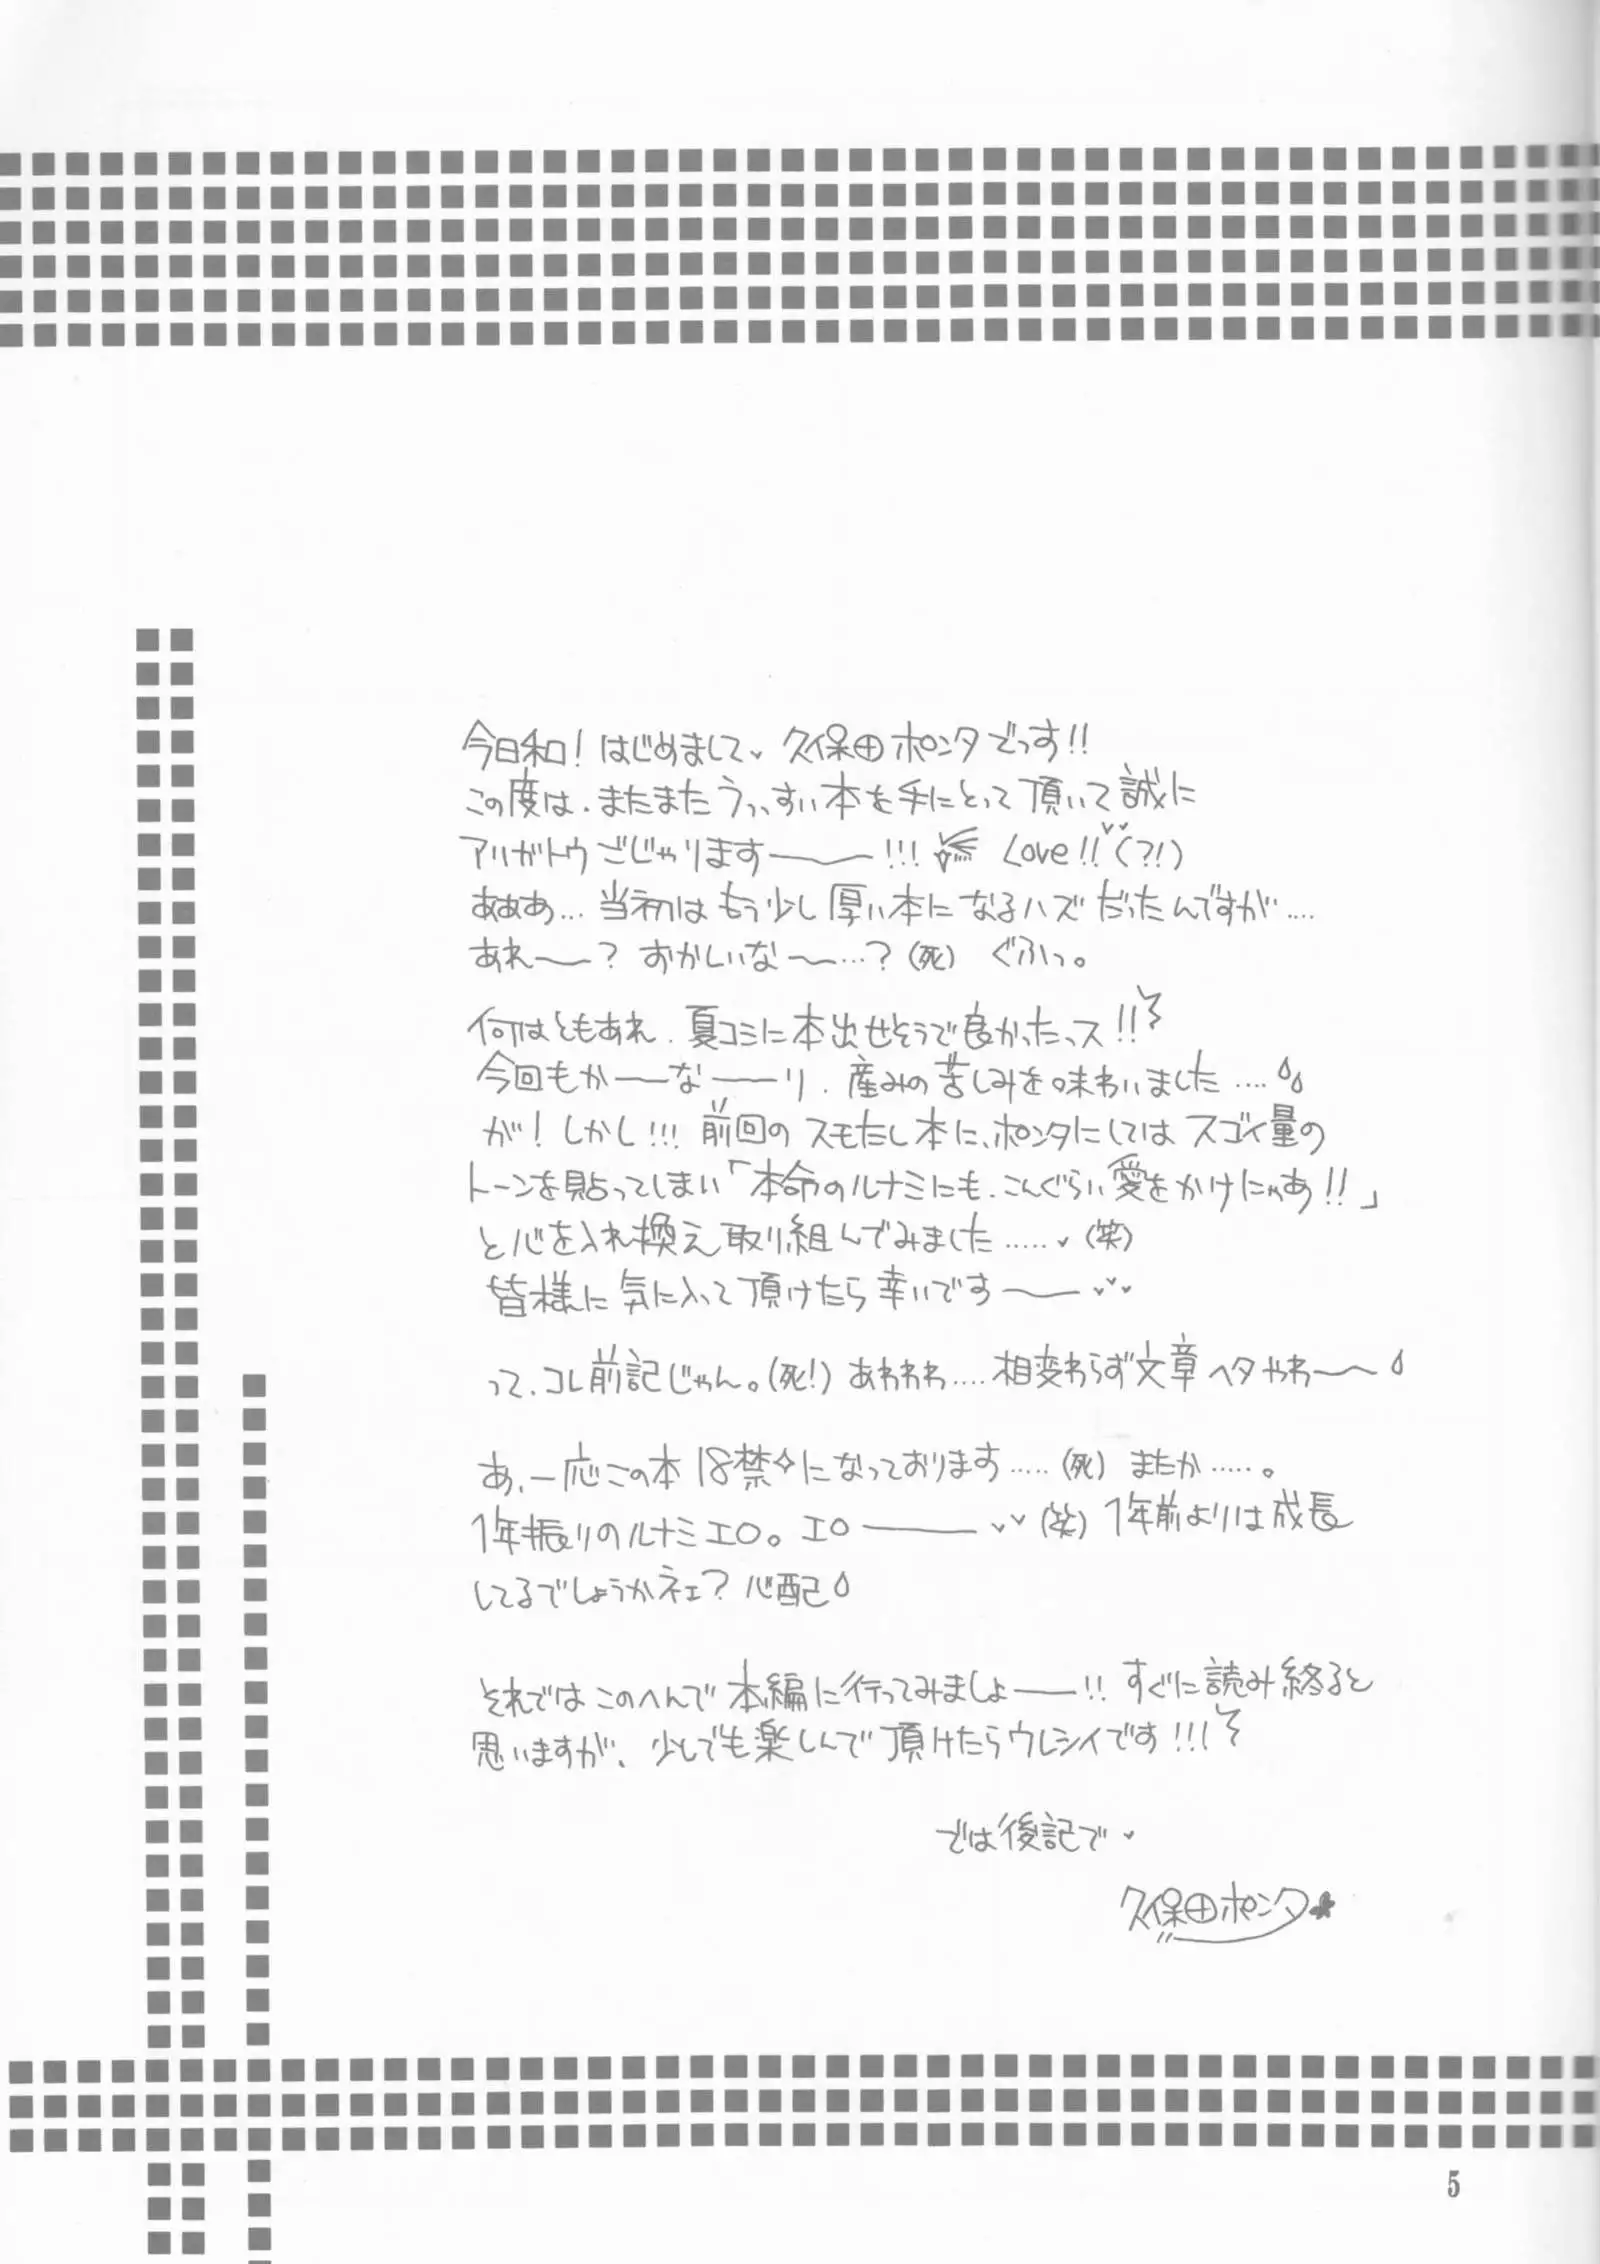 今日和！はじめまして♥ 久保田ポンタでっす!!
この度は、またまたうっすい本を手にとって頂いて誠に
アリガトウごじゃります――!!! Love!!♥♥(?!)
あああ…当初はもう少し厚い本になるハズだったんですが….
あれ〜？おかしいな〜…？(死) ぐふっ。
何はともあれ、夏コミに本出せそうで良かったっス!!
今回もか――な――り、産みの苦しみを味わいました….
が！しかし!!! 前回のスモたし本に、ポンタにしてはスゴイ量の
トーンを貼ってしまい「本命のルナミにも、こんぐらい愛をかけにゃあ!!」
と心を入れ換え取り組んでみました…..♥(笑)
皆様に気に入って頂けたら幸いです――♥♥
って、コレ前記じゃん。(死!) あわわわ….相変わらず文章ヘタやわ〜
あ、一応この本18禁✧になっております…..(死) またか…..。
1年振りのルナミエロ。エロ――♥♥(笑) 1年前よりは成長
してるでしょうかネェ？心配
それではこのへんで本編に行ってみましょ――!! すぐに読み終ると
思いますが、少しでも楽しんで頂けたらウレシイです!!!
では後記で♥
久保田ポンタ
5